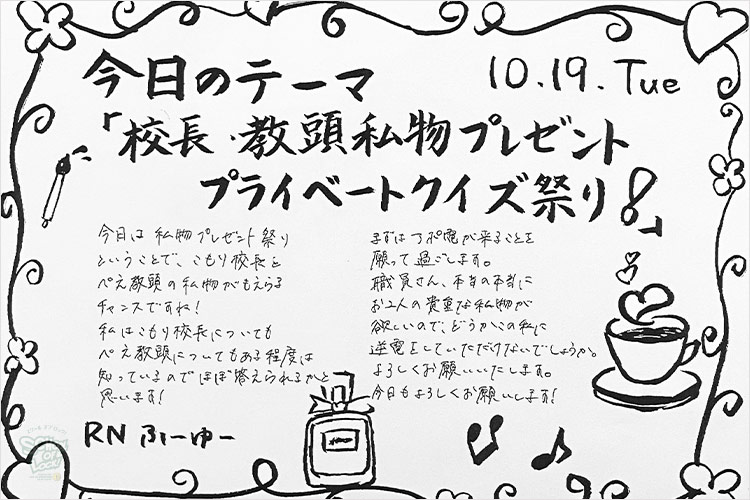 今日のテーマ 10.19.Tue
「校長・教頭私物プレゼント
プライベートクイズ祭り!」
今日は私物プレゼント祭り
ということで、こもり校長と
ぺえ教頭の私物がもらえる
チャンスですね!
私はこもり校長についても
ぺえ教頭についてもある程度は
知っているのでほぼ答えられるかと
思います!
RN ふーゆー
まずは了承電が来ることを
願って過ごします。
職員さん、本当の本当に
お2人の貴重な私物が
欲しいので、どうかこの私に
逆電をしていただけないでしょうか。
よろしくお願いいたします。
今日もよろしくお願いします!
SCHOOL OF LOCK!